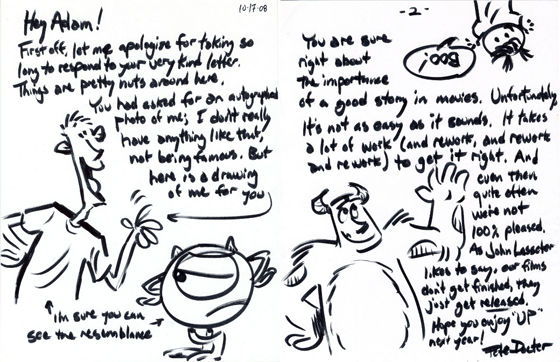 10-17-08
Hey Adam!
First off, let me apologize for taking so
long to respond to your very kind letter.
Things are pretty nuts around here.
You had asked for an autographed
photo of me; I don't really
have anything like that,
not being famous. But
here is a drawing
of me for you
I'm sure you can
see the resemblance
-2-
BOO!
You are sure
right about
the importanse
of a good story in movies. Unfortunately,
It's not as easy as it sounds. It takes
a lot of work (and rework, and rework
and rework) to get it right. And
even then
quite often
we're not
100% pleased.
As John Lasseter
likes to say, our films
don't get finished, they
just get released.
Hope you enjoy "UP"
next year!
Pete Docter